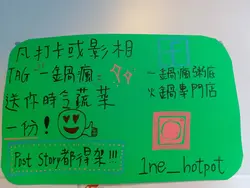 凡打卡或影相
TAG "一鍋瘋"
送你時令蔬菜
一份!
Post Story都得架!!!
一鍋瘋粥底
火鍋專門店
1ne_hotpot